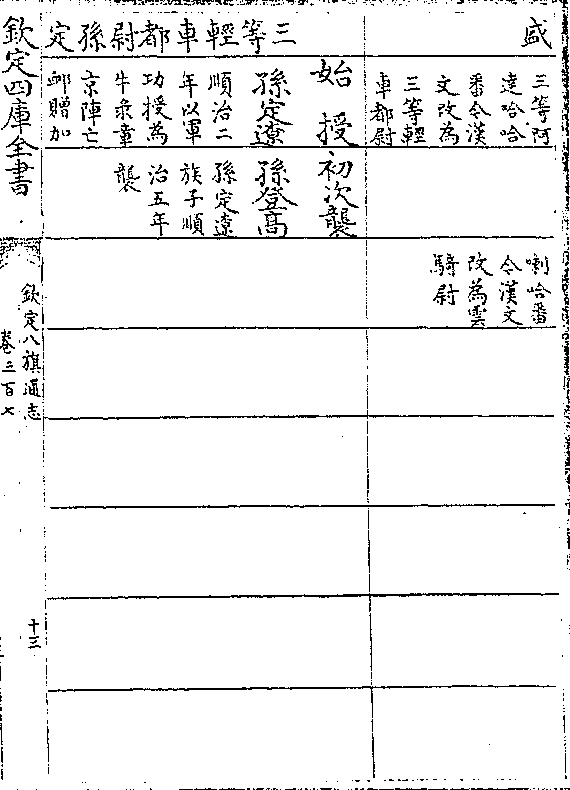 盛
三等阿
達哈哈
番今漢
文改為
三等輕
車都尉
喇哈番
今漢文
改為雲
騎尉
三等輕車都尉孫定
始授
孫定遼
順治二
年以軍
功授為
牛彔章
京陣亡
䘏贈加
初次襲
孫登高
孫定遼
族子順
治五年
襲
欽定四庫全書
欽定八旗通志
卷三百七
十三